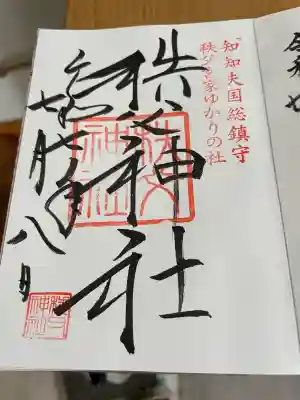 知知夫国総鎮守
秩父宮家ゆかりの社
秩父神社
秩父神社
七月八日